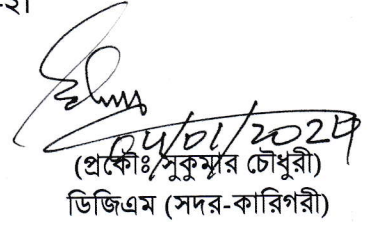 -২১
04/01/2024
(প্রকৌঃ সুকুমার চৌধুরী)
ডিজিএম (সদর-কারিগরী)